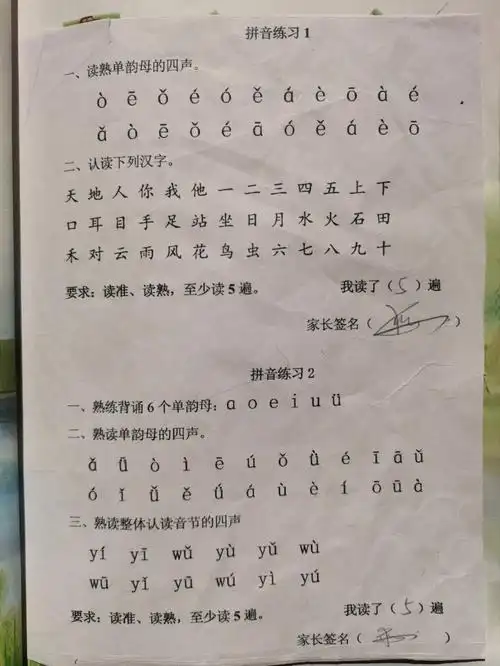 拼音练习1
一、读熟单韵母的四声。
ò ē ǒ é ó ě á è ō à é
ǎ ò ē ǒ é ā ó ě á è ō
二、认读下列汉字。
天 地 人 你 我 他 一 二 三 四 五 上 下
口 耳 目 手 足 站 坐 日 月 水 火 石 田
禾 对 云 雨 风 花 鸟 虫 六 七 八 九 十
要求：读准、读熟，至少读5遍。 我读了（5）遍
家长签名（ ）
拼音练习2
一、熟练背诵6个单韵母：ɑ o e i u ü
二、熟读单韵母的四声。
ǎ ǖ ò ì ē ú ǒ ǜ é ī ā ǔ
ó ǐ ǚ ě ǘ á ù è í ō ū à
三、熟读整体认读音节的四声
yí yī wǔ yù yǔ wù
wū yǐ yū wú yì yú
要求：读准、读熟，至少读5遍。 我读了（5）遍
家长签名（ ）